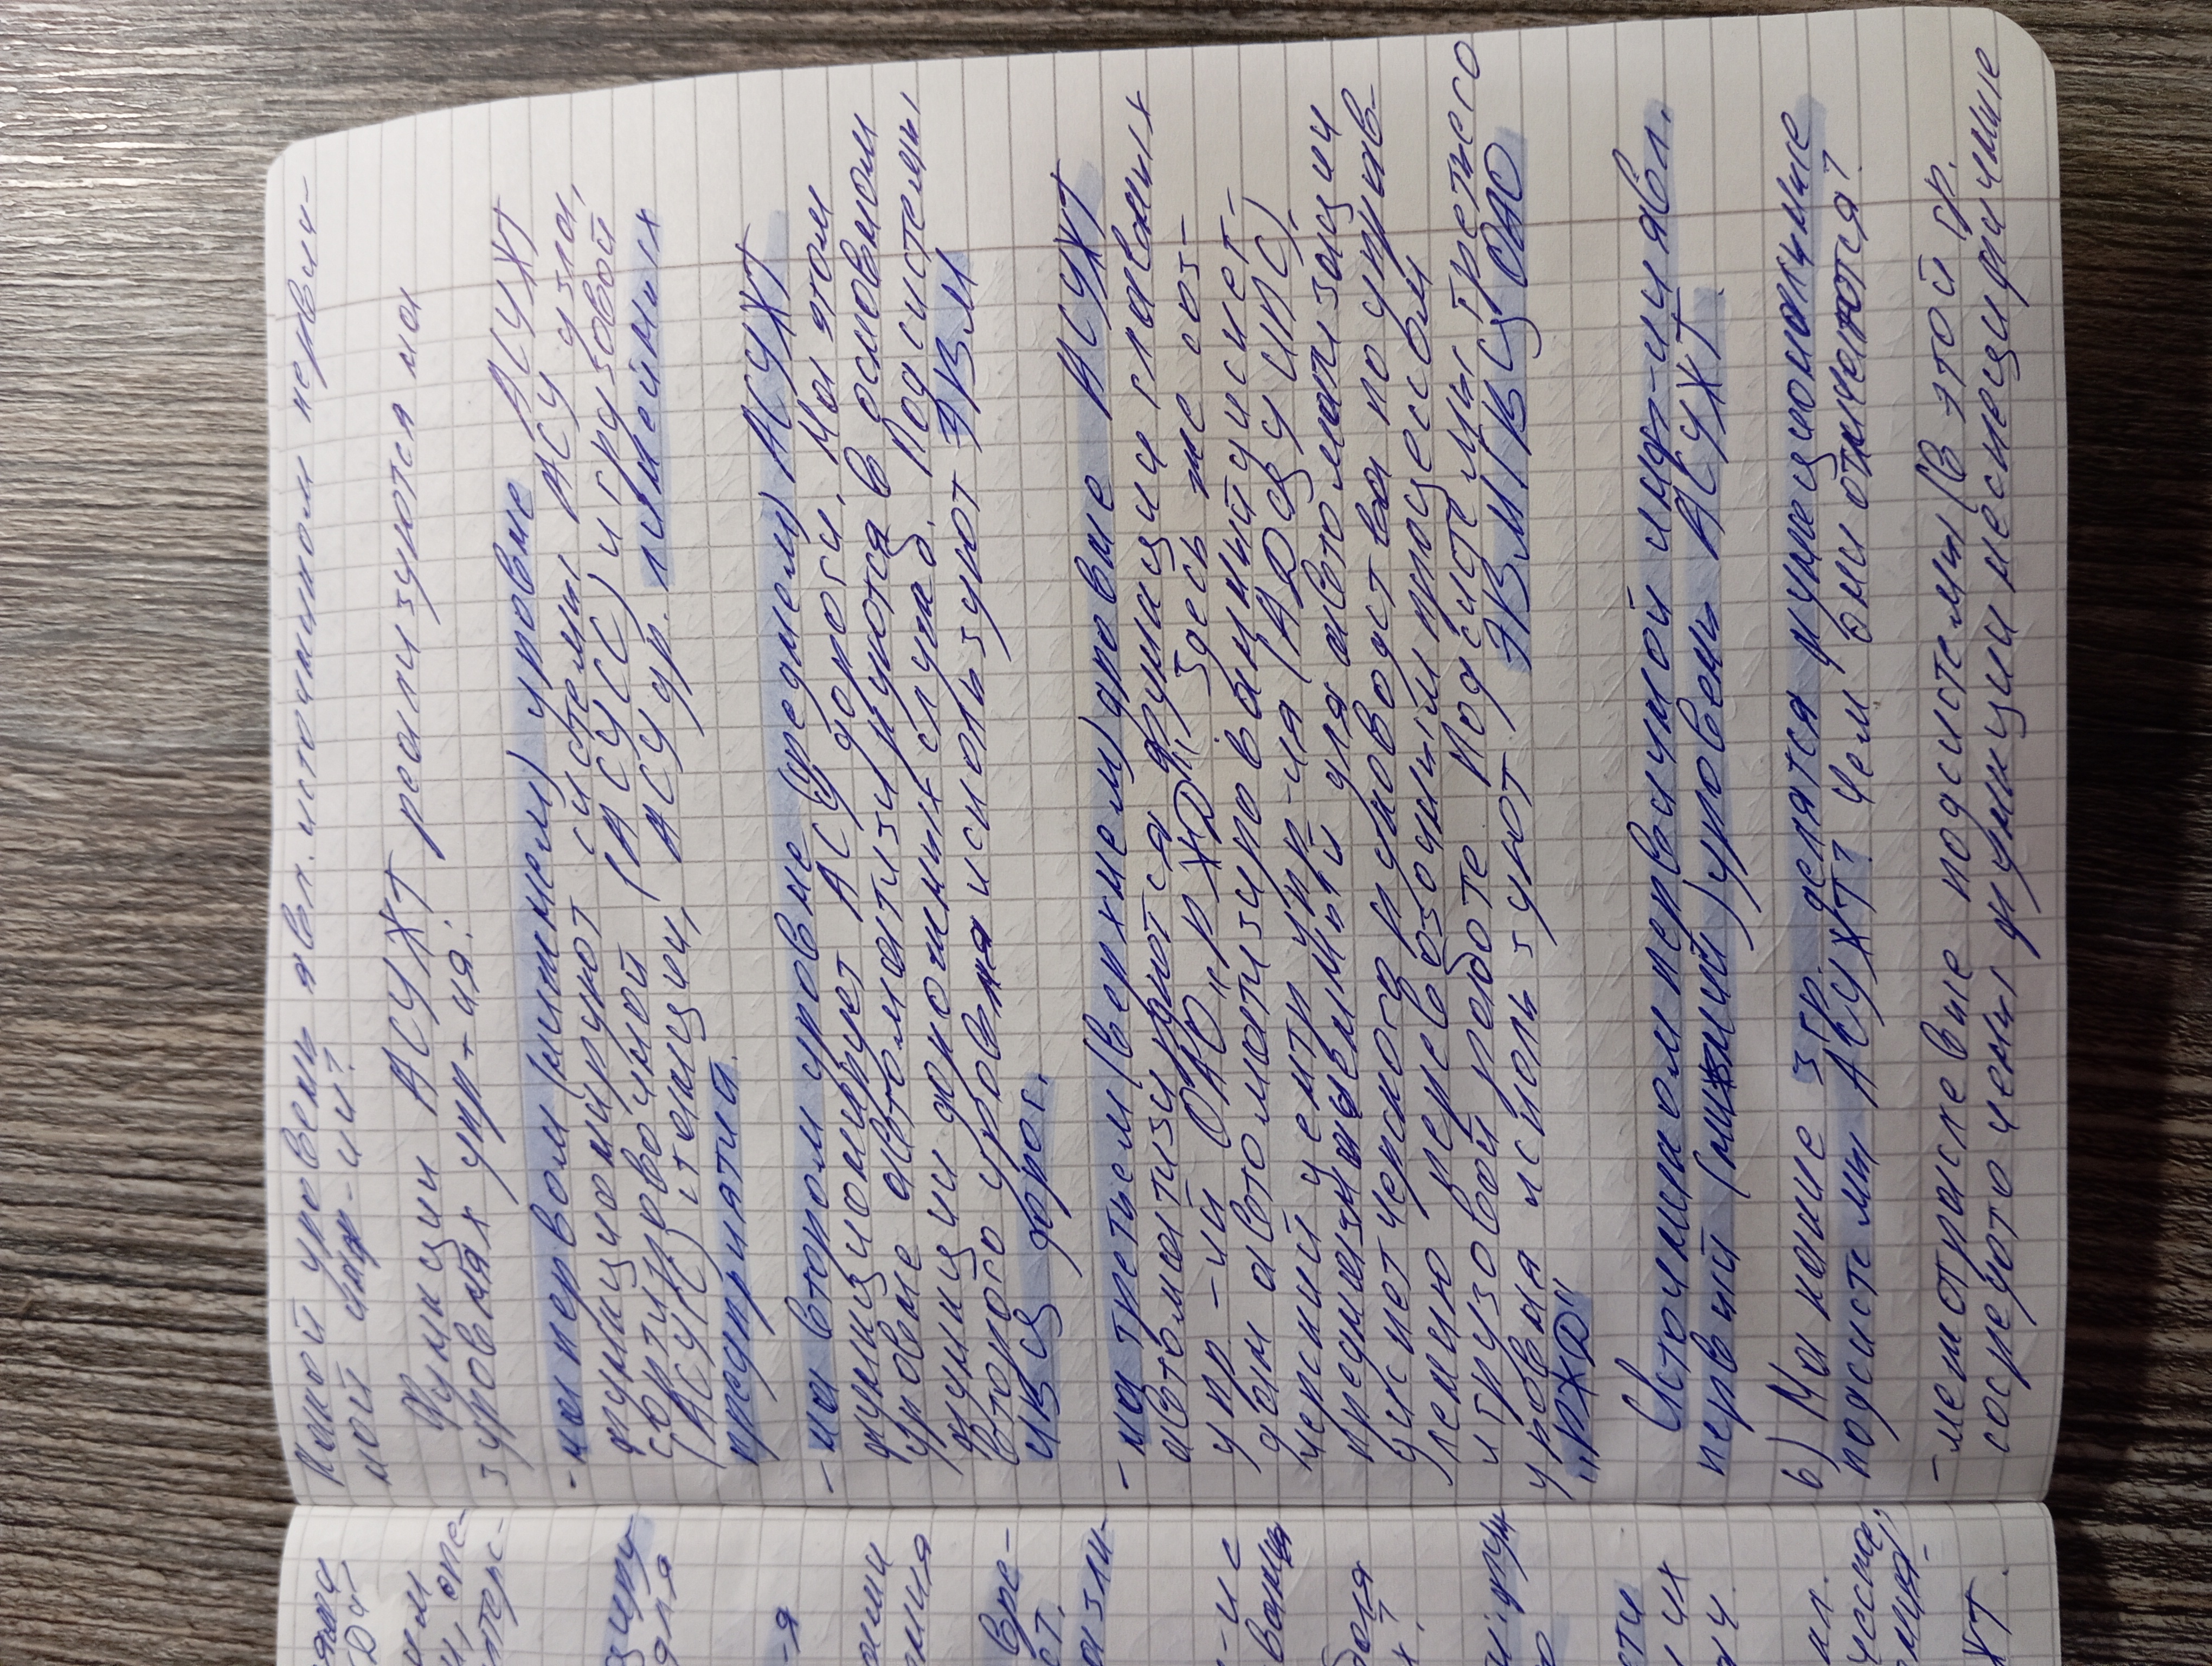 Какой уровень явл. источником первич-
ной инф-ии?
Функции АСУЖТ реализуются на
3 уровнях упр-ия:
- на первом (нижнем) уровне АСУЖТ
функционируют системы АСУ узла,
сортировочной (АСУСС) и грузовой
(АСУГС) станции, АСУ др. линейных
предприятий.
- на втором уровне (среднем) АСУЖТ
функционирует АСУ дороги. На этом
уровне автоматизируются в основном
функции дорожных служб. Подсистемы
второго уровня используют ЭВМ
ИВЦ дорог.
- на третьем (верхнем) уровне АСУЖТ
автоматизируются функции главных
упр-ий ОАО "РЖД". Здесь же соз-
дан автоматизированный диспет-
черский центр упр-ия (АДЦУ ЦПС),
предназначенный для автоматизации
диспетчерского руководства по управ-
лению перевозочным процессом
и грузовой работе. Подсистемы третьего
уровня используют ЭВМ ГВЦ ОАО
"РЖД"
Источником первичной инф-ии явл.
первый (нижний) уровень АСУЖТ.
6) На какие 3 гр. делятся функциональные
подсистемы АСУЖТ? Чем они отличаются?
- неотраслевые подсистемы (в этой гр.
сосредоточены функции неспецифичные